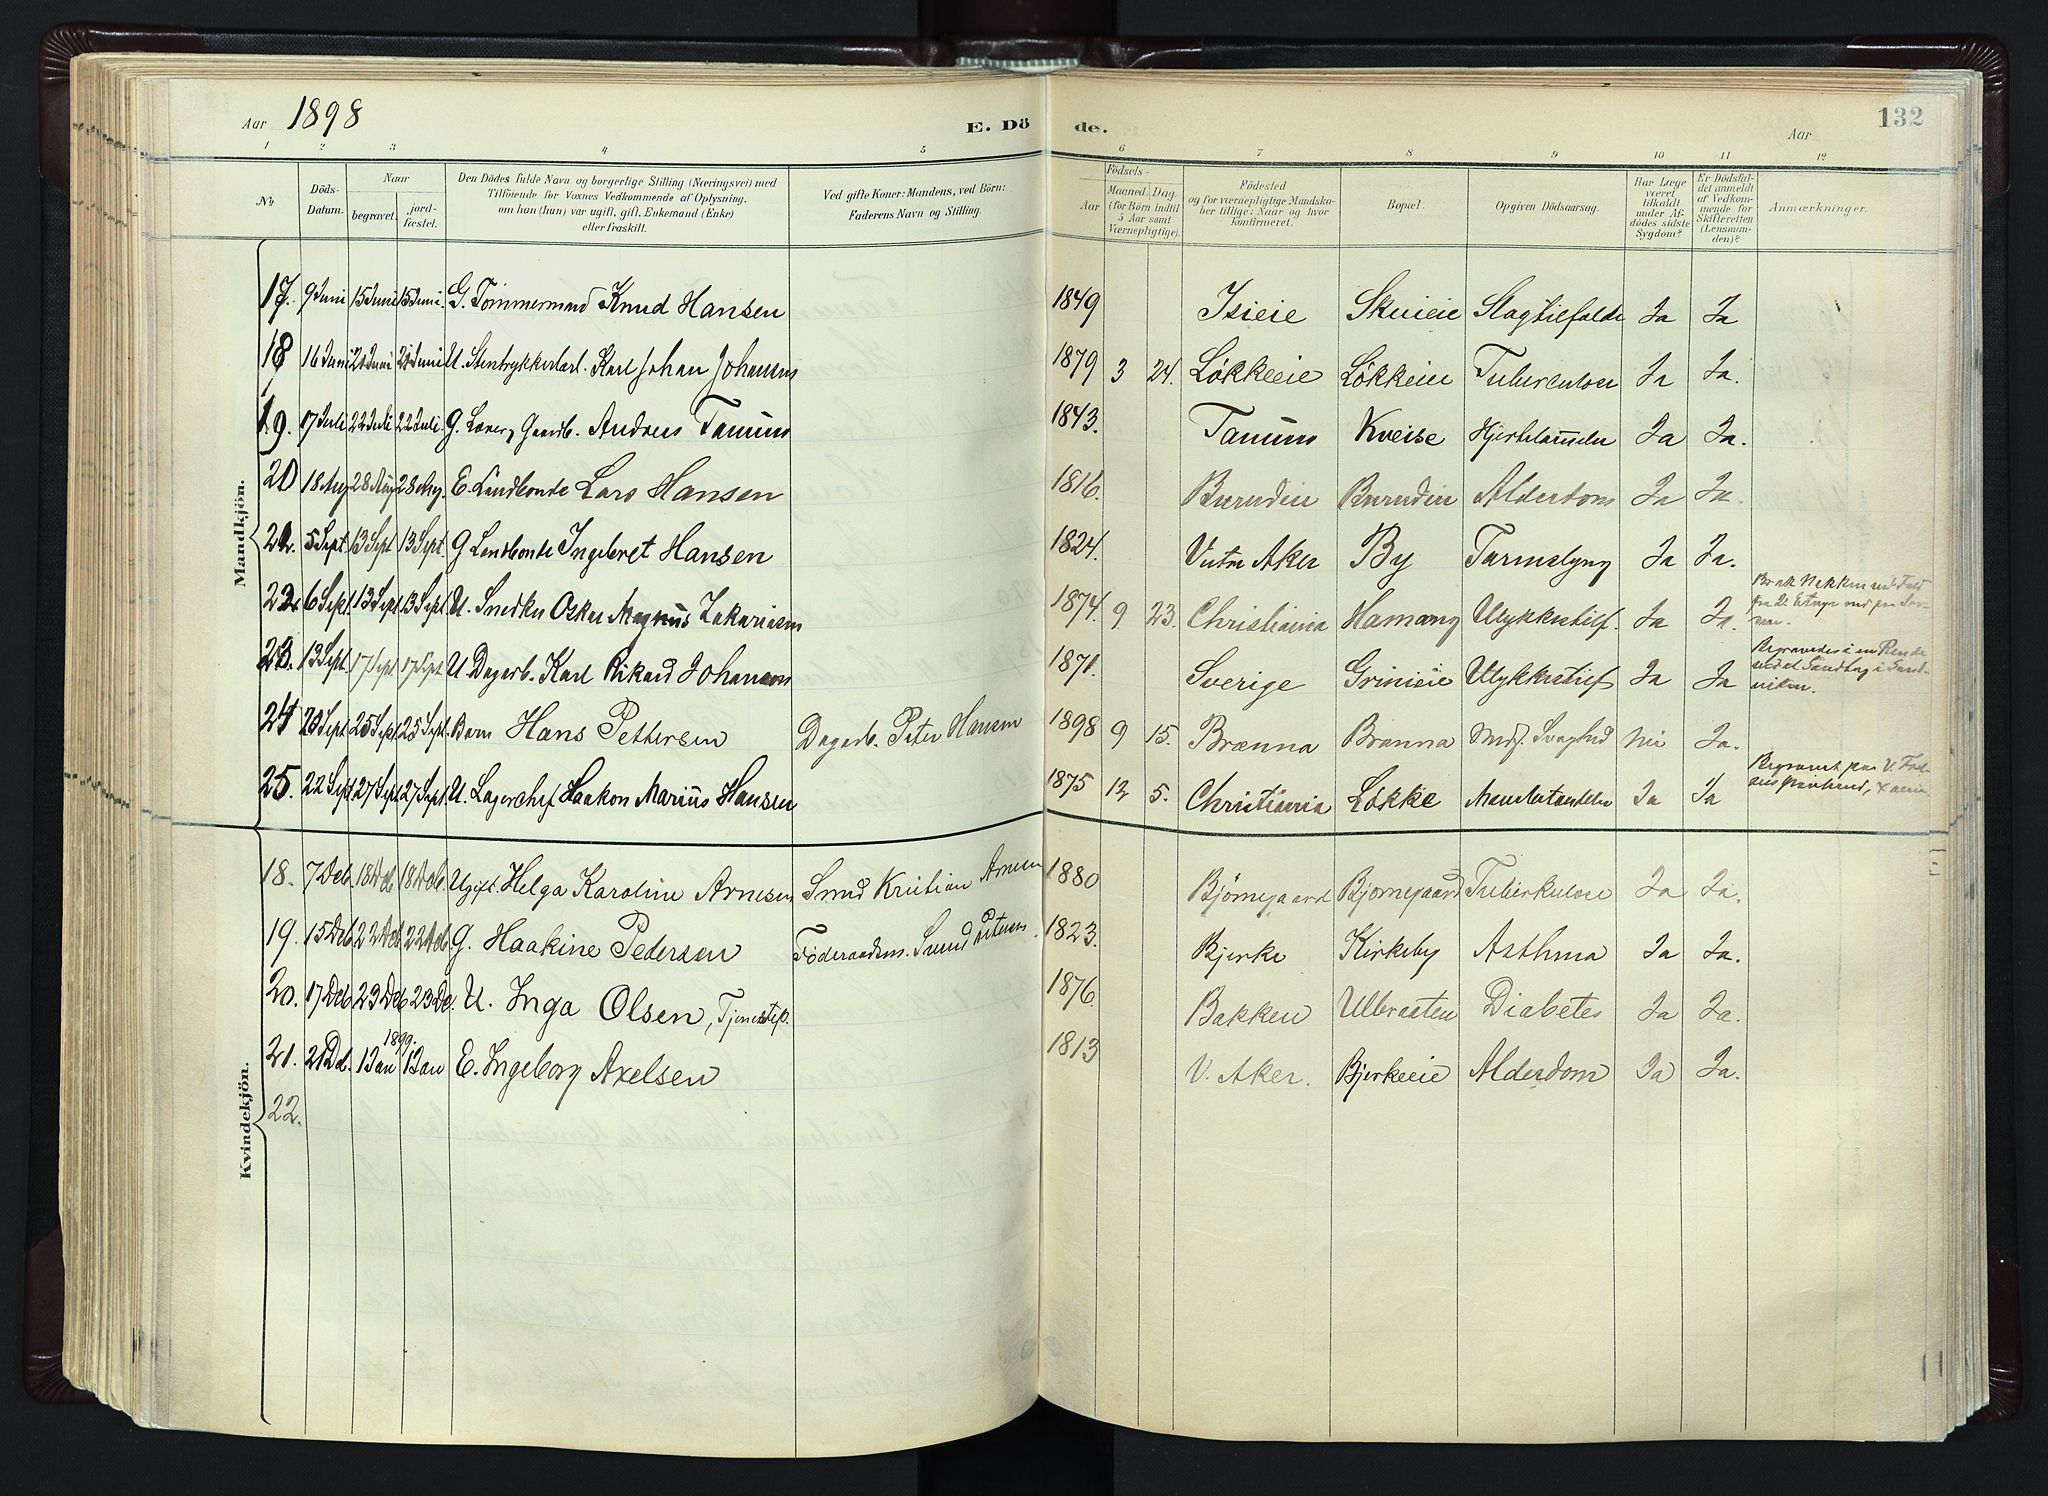 Aar 1898 E. Dö de. Aar 132
1 2 3 4 5 6 7 8 9 10 11 12
№ Döds-Datum. Naar begravet. jordfæstet. Den Dödes fulde Navn og borgerlige Stilling (Næringsvei) med Tilföiende for Voxnes Vedkommende af Oplysning, om han (hun) var ugift, gift, Enkemand (Enke) eller fraskilt. Ved gifte Koner: Mandens, ved Börn: Faderens Navn og Stilling. Födsels- Aar Maaned Dag (for Börn indtil 5 Aar samt Værnepligtige). Födested og for værnepligtige Mandskaber tillige: Naar og hvor konfirmeret. Bopæl. Opgiven Dödsaarsag. Har Læge været tilkaldt under Afdödes sidste Sygdom? Er Dödsfaldet anmeldt af Vedkommende for Skifteretten (Lensmanden)? Anmærkninger.
Mandkjön.
17. 9 Juni 15 Juni 15 Juni. G. Tömmermand Knud Hansen 1849 Isieie Skuieie Slagtilfælde Ja Ja
18 16 Juni 21 Juni 21 Juni U. Stentrykkerlærl. Karl Johan Johansen 1879 3 24. Løkkeeie Løkkeeie Tuberculose Ja Ja.
19. 17 Juli 22 Juli 22 Juli. G. Laver, Gaardb. Andreas Tanum 1843. Tanum Kveise Hjertelammelse Ja Ja.
20 18 Aug 28 Aug 28 Aug. E. Landbonde Lars Hansen 1816. Burudeie Burudeie Alderdom Ja Ja.
21. 5 Sept 13 Sept 13 Sept G Landbonde Ingebret Hansen 1824. Vestre Aker By Tarmslyng Ja Ja.
22. 6 Sept. 13 Sept 13 Sept U. Snedker Oskar Magnus Zakariasen 1874. 9. 23. Christiania Hamang Ulykkestilf. Ja Ja. Brak Nakken ved Fald fra 2t Etage ned paa
23. 13 Sept. 17 Sept. 17 Sept U Dagarb. Karl Rikard Johansen 1871. Sverige Grinieie Ulykkestilf Ja Ja Begravedes i en Rende ved et Sandtag i Sandviken.
24 20 Sept 25 Sept 25 Sept. Barn Hans Pettersen Dagarb. Peter Hansen 1898 9 15. Brænna Brænna Medf. Svaghed Nei Ja.
25. 22 Sept 27 Sept 27 Sept. U. Lagerchef Haakon Marius Hansen 1875 12 5. Christiania Løkke Ja Ja Begravet paa V.
Kvindekjön.
18. 7 Deb 18 Deb 18 Deb Ugift. Helga Karoline Arnesen Smed Kristian Arnesen 1880 Bjørnegaard Bjørnegaard Tuberkulose Ja Ja.
19. 15 Deb 22 Deb 22 Deb G. Haakine Pedersen Föderaadsm. Svend Petersen 1823. Bjerke Kirkeby Asthma Ja Ja.
20. 17 Deb 23 Deb 23 De. U. Inga Olsen, Tjenestep. 1876. Bakken Ulvraaten Diabetes Ja Ja.
21. 21 D. 1 Jan 1899. 1 Jan E. Ingeborg Axelsen 1813 V. Aker. Bjerkeeie Alderdom Ja Ja.
22.